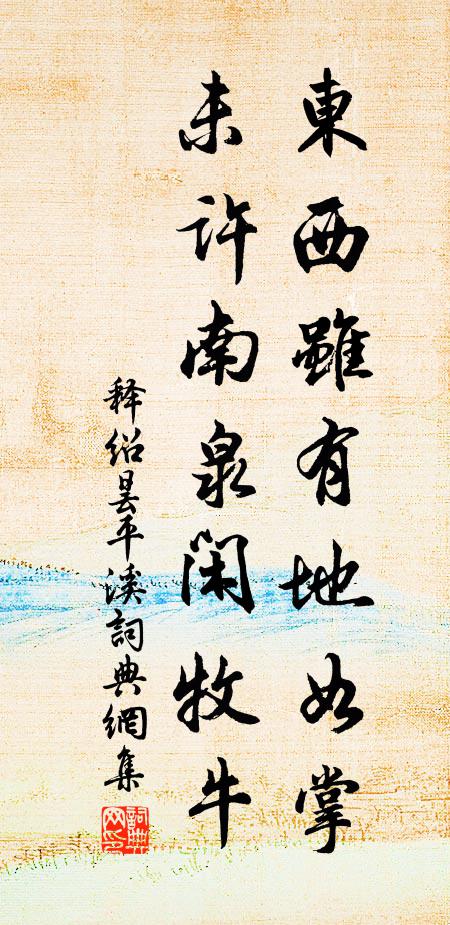 東西雖有地如掌
未許南泉閑牧牛
释绍昙平溪詞典網集
詞典网印